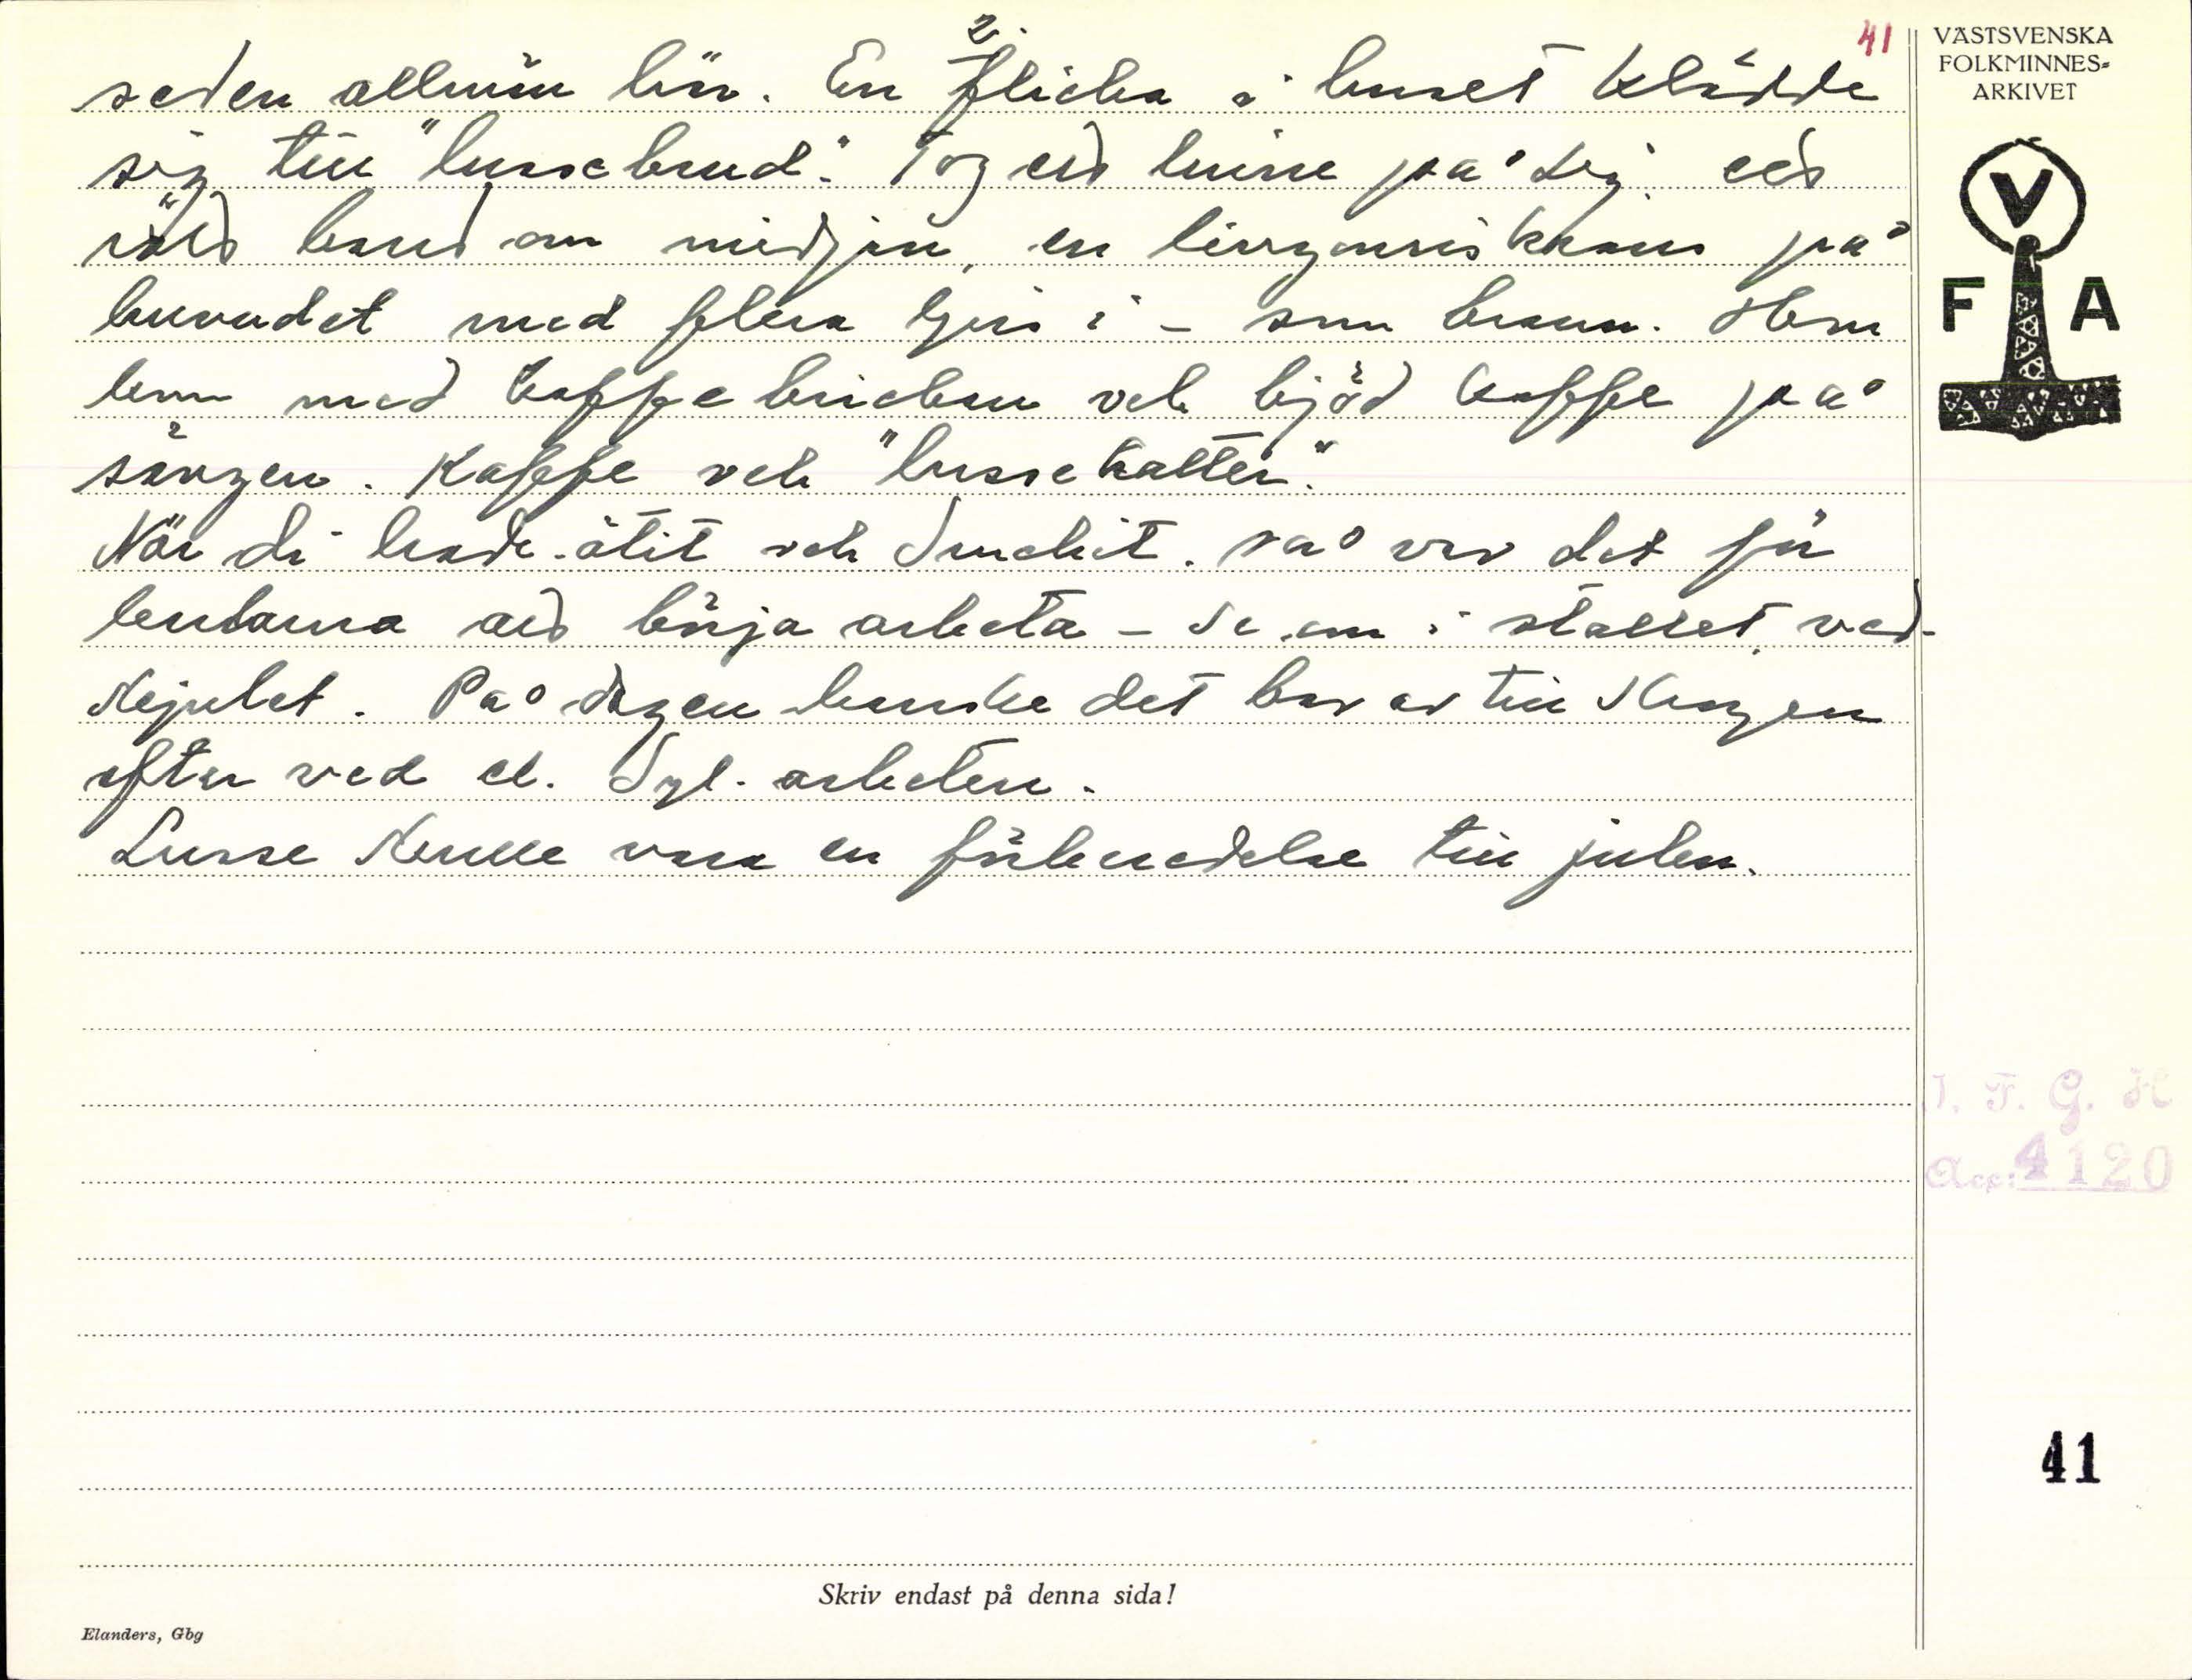 2.
41
seden allmän här. En flicka i huset klädde
sig till "lussebrud". Tog vid linne på sig. ett
rött band om midjan, en lingonriskrans på
huvudet med flera ljus i – som brann. Hon
kom med kaffebrickan och bjöd kaffe på
sängen. Kaffe och "lussekatter".
När di hade ätit och druckit. så var det för
karlarna att börja arbeta – se om i stallet, ved-
skjulet. På dagen kanske det bar av till skogen
efter ved el. dyl. arbeten.
Lusse skulle vara en förberedelse till julen.
VÄSTSVENSKA
FOLKMINNES-
ARKIVET
V
F A
I. F. G. H
Acc: 4120
41
Skriv endast på denna sida!
Elanders, Gbg